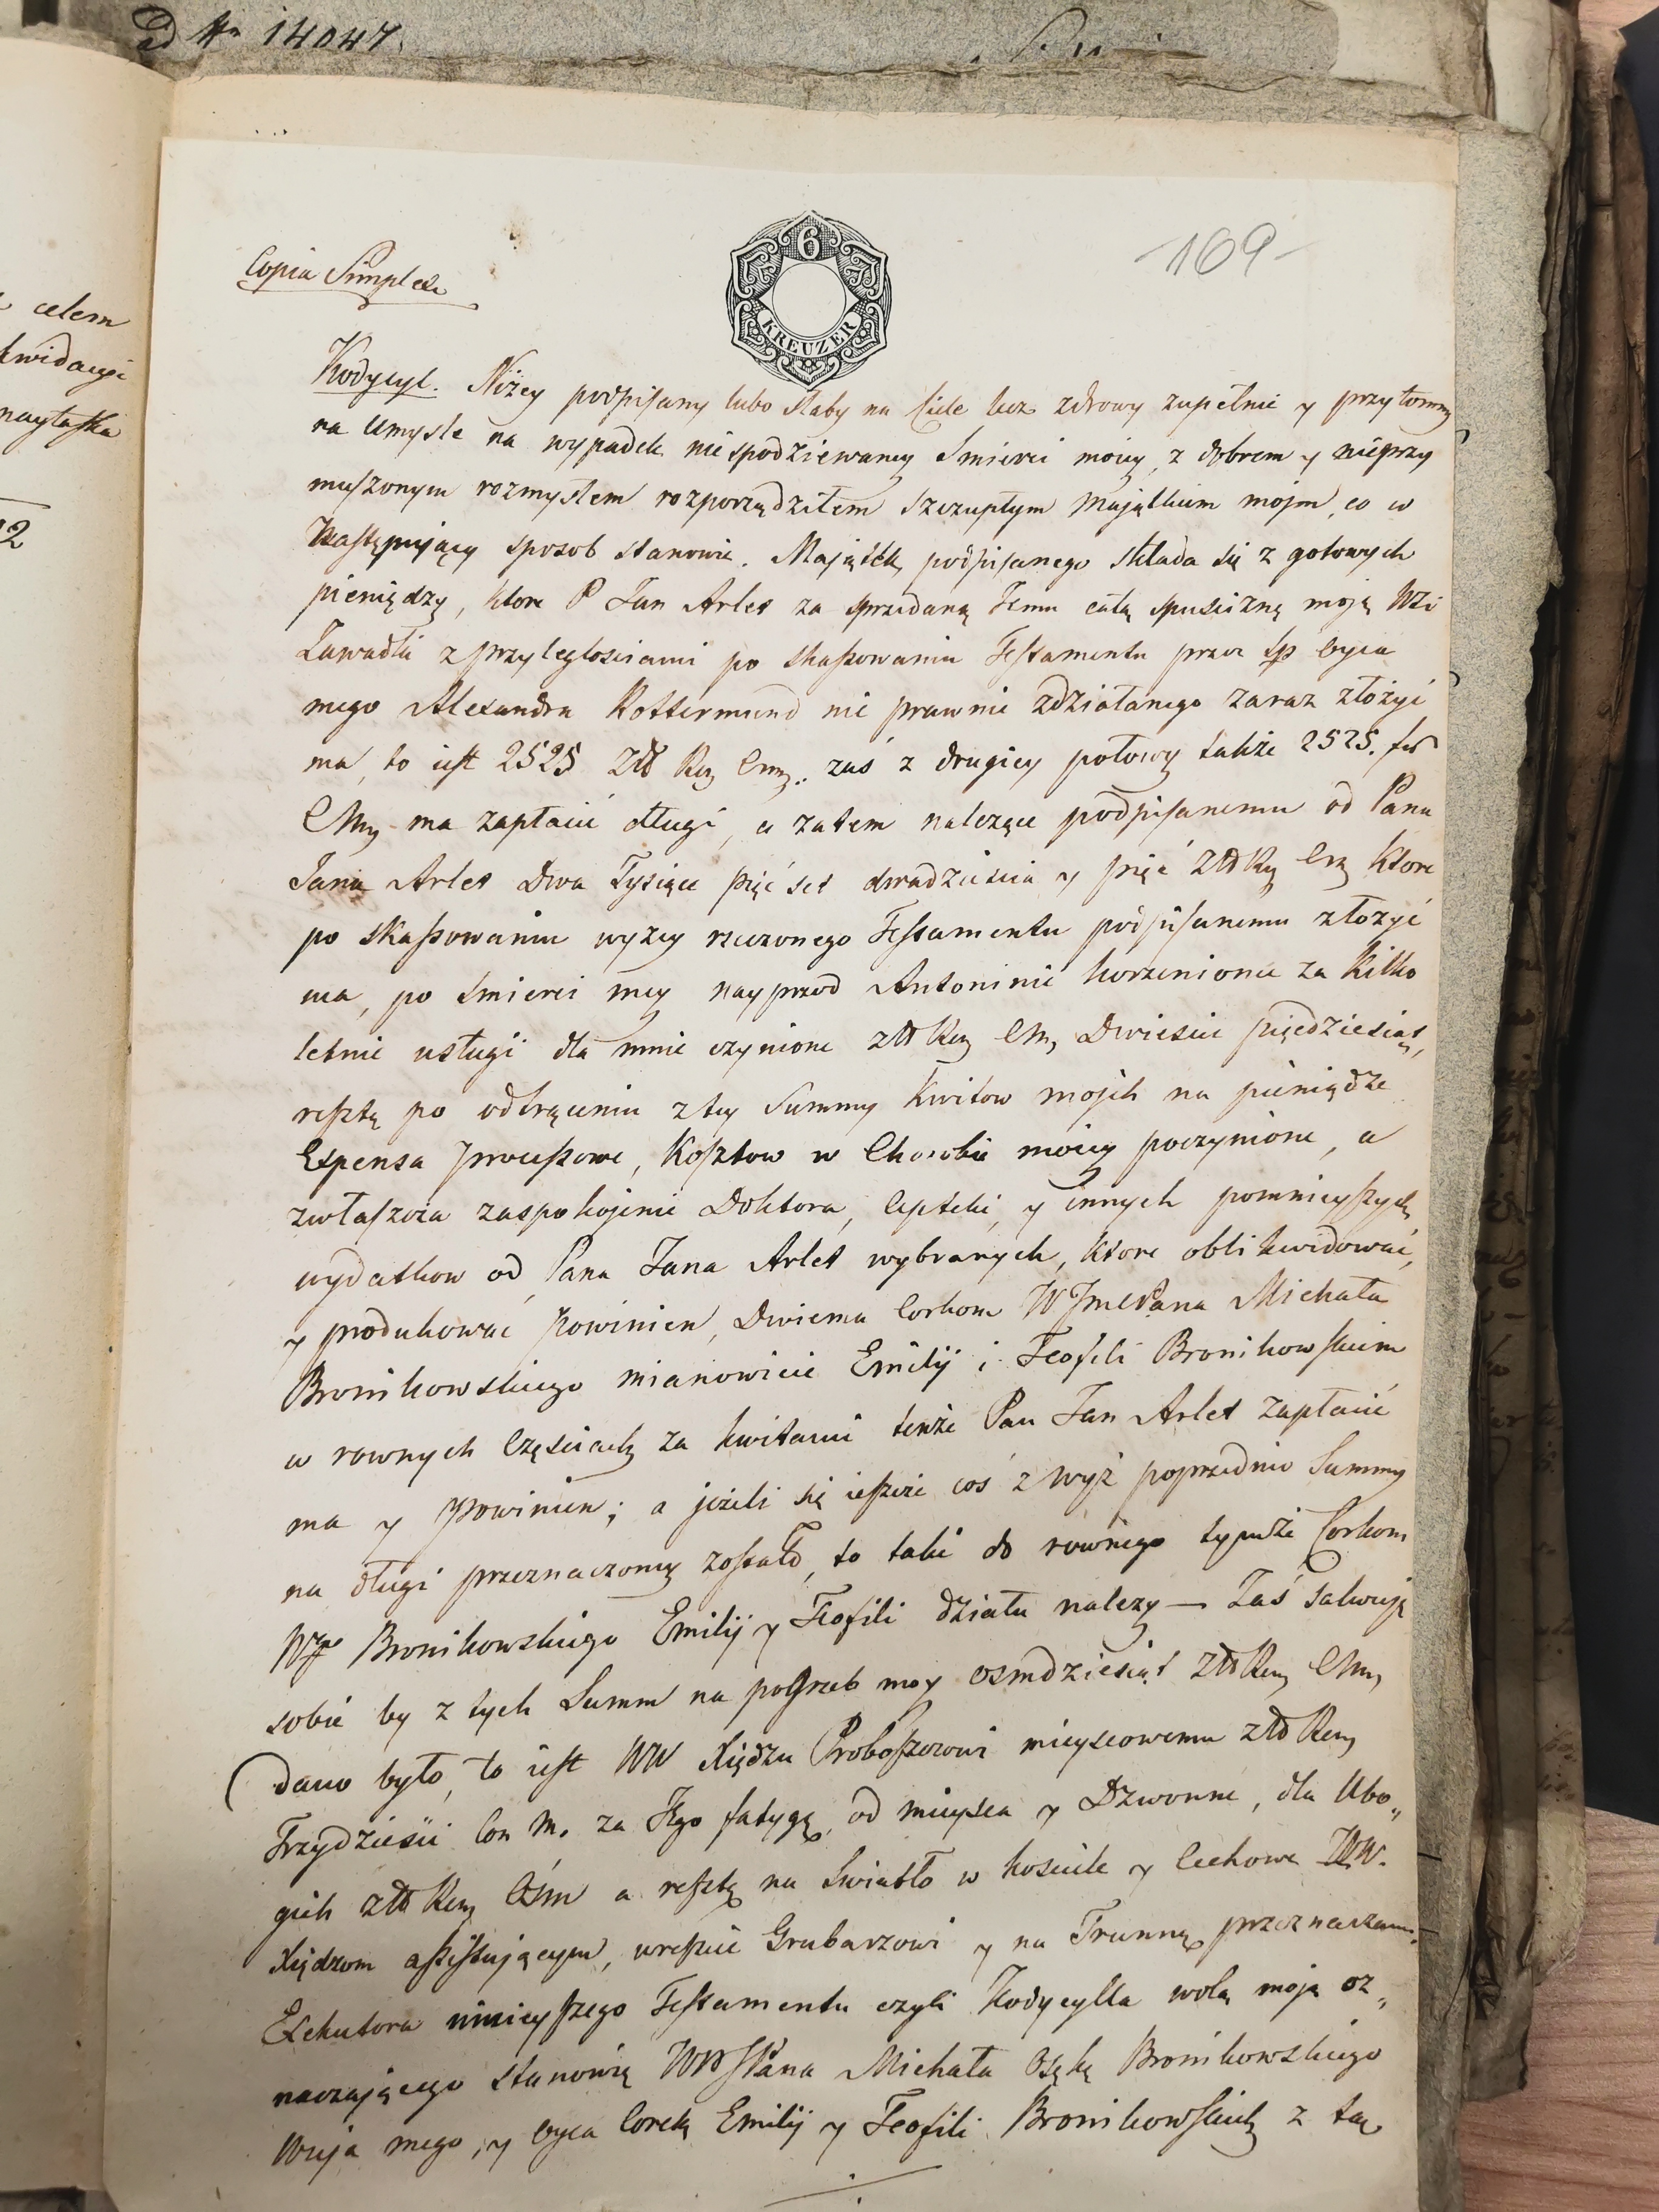 ad Nr 14047.
celem
kwidacyi
naytaska
2
6
KREUZER
-169-
Copia Simplex
Kodycyl. Niżey podpisany lubo słaby na siele lecz zdrowy zupełnie y przytomny
na Umysle na wypadek niespodziewaney Smierci moiey, z dobrem y nieprzy
muszonym rozmysłem rozporządziłem szczupłym Majątkiem mojm, co w
Następujący sposob stanowie. Majątek podpisanego składa się z gotowych
pieniędzy, ktore P Jan Arlet za sprzedaną Jemu całą spuściznę moją Wsi
Zawadki z przyległosciami po skassowaniu Testamentu przez śp Oyca
mego Alexandra Rottermund nie prawnie zdziałanego zaraz złożyć
ma, to iest 2525 Złł Rey Cmy. zaś z drugiey połowy także 2525. fr
CMy ma zapłacić długi, a zatem należące podpisanemu od Pana
Jana Arlet Dwa Tysiące pięćset dwadziescia y pięć Złł Rey Cmy ktore
po skassowaniu wyżey rzeczonego Testamentu podpisanemu złożyć
ma, po smierci mey nayprzod Antoninie korzenionce za kilko
letnie usługi dla mnie czynione złł Rey CMy Dwiescie pięcdziesiąt,
resztę po odtrąceniu z tey Summy kwitow mojch na pieniądze
Expensa processowe, kosztow w Chorobie moiey poczynione, a
zwłaszcza zaspokojenie Doktora, Apteki, y innych pomnieyszych
wydatkow od Pana Jana Arlet wybranych, ktore oblikwidować,
y produkować powinien, Dwiema Corkom W JmcPana Michała
Bronikowskiego mianowicie Emilij i Teofili Bronikowskiem
w rownych Częsciach za kwitami tenże Pan Jan Arlet zapłacić
ma y powinien; a jeżeli się ieszcze coś z wyż poprzednio Summy
na długi przeznaczoney zostało, to takie do rownego tymże Corkom
WJP Bronikowskiego Emilij y Teofili działu należy — Zaś salwuję
sobie by z tych Summ na pogrzeb moy osmdziesiąt Złł Rey CMy
dano było, to iest WW Xiędzu Proboszczowi mieyscowemu złł Rey
Trzydziesci Con M. za Jego fatygę, od mieysca y Dzwonne, dla Ubo„
gich złł Rey Ośm a resztę na Swiatło w kosciele y Cechowe WW.
Xiędzom assistującym, wreszcie Grabarzowi y na Trunnę przeznaczam.
Exekutora ninieyszego Testamentu czyli Kodycylla wolą moją oz„
naczającego stanowię WJPana Michała Osękę Bronikowskiego
Wuja mego, y Oyca Corek Emilij y Teofili Bronikowskich z tą